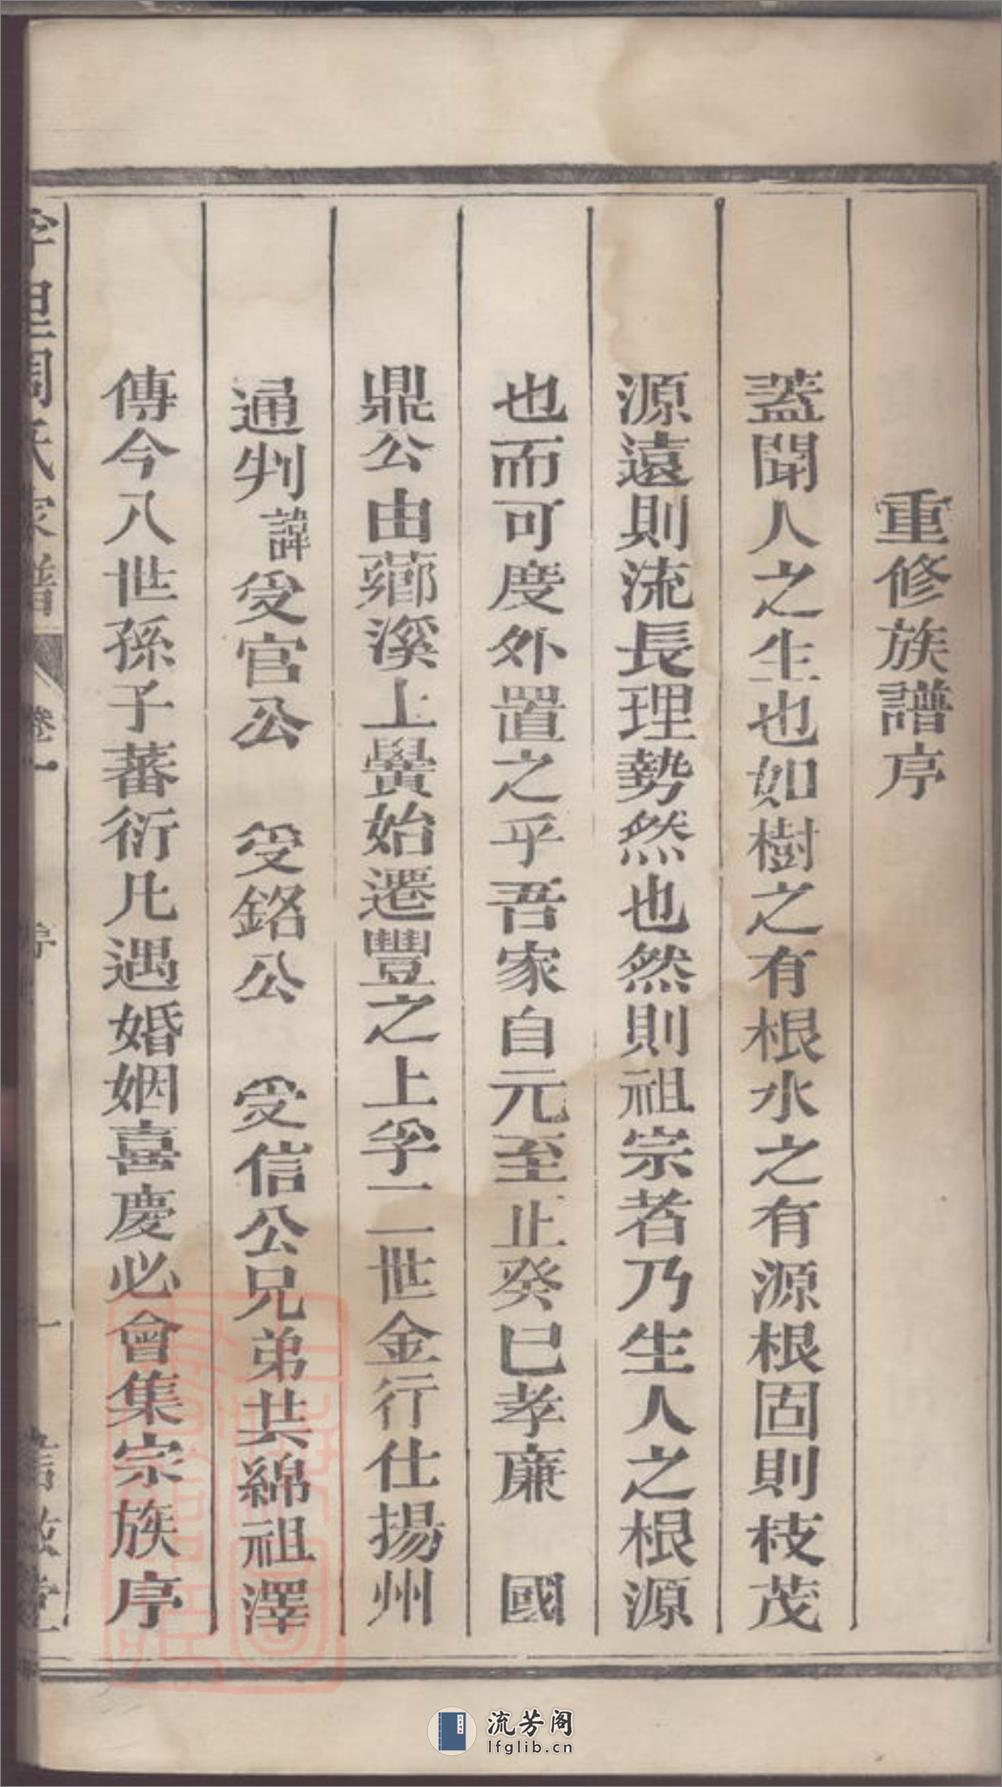 重修族譜序
蓋聞人之生也如樹之有根水之有源根固則枝茂
源遠則流長理勢然也然則祖宗者乃生人之根源
也而可度外置之乎吾家自元至止癸巳孝廉　國
鼎公由薌溪上黌始遷豐之上孚二世金行仕揚州
通判諱受官公　受銘公　受信公兄弟共綿祖澤
傳今八世孫子蕃衍凡遇婚姻喜慶必會集宗族序
孚里周氏家譜　卷一　序　一
流芳阁
lfglib.cn